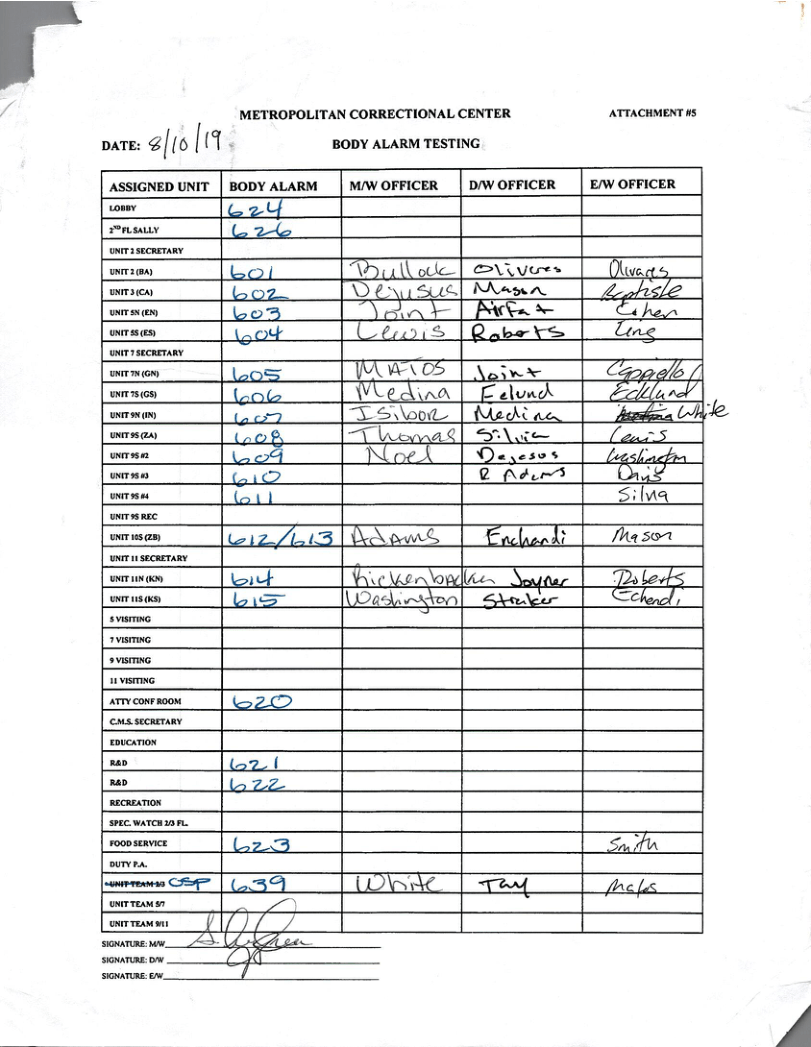 METROPOLITAN CORRECTIONAL CENTER ATTACHMENT #5
DATE: 8/10/19 BODY ALARM TESTING
ASSIGNED UNIT BODY ALARM M/W OFFICER D/W OFFICER E/W OFFICER
LOBBY 624
2ND FL SALLY 626
UNIT 2 SECRETARY
UNIT 2 (BA) 601 Bullock Oliveres Olivares
UNIT 3 (CA) 602 Dejusus Mason Baptiste
UNIT 5N (EN) 603 Joint Airfat
UNIT 5S (ES) 604 Lewis Roberts
UNIT 7 SECRETARY
UNIT 7N (GN) 605 MATOS Joint
UNIT 7S (GS) 606 Medina Eclund Eckland
UNIT 9N (IN) 607 ISibor Medina White
UNIT 9S (ZA) 608 Thomas Silvia Lewis
UNIT 9S #2 609 Noel Dejesus Washington
UNIT 9S #3 610 R Adams Davis
UNIT 9S #4 611 Silva
UNIT 9S REC
UNIT 10S (ZB) 612/613 Adams Enchandi Mason
UNIT 11 SECRETARY
UNIT 11N (KN) 614 Rickenbacker Joyner Roberts
UNIT 11S (KS) 615 Washington Straker Echendi
5 VISITING
7 VISITING
9 VISITING
11 VISITING
ATTY CONF ROOM 620
C.M.S. SECRETARY
EDUCATION
R&D 621
R&D 622
RECREATION
SPEC. WATCH 2/3 FL.
FOOD SERVICE 623 Smith
DUTY P.A.
UNIT TEAM 2/3 CSP 639 White Tay Matos
UNIT TEAM 5/7
UNIT TEAM 9/11
SIGNATURE: M/W
SIGNATURE: D/W
SIGNATURE: E/W